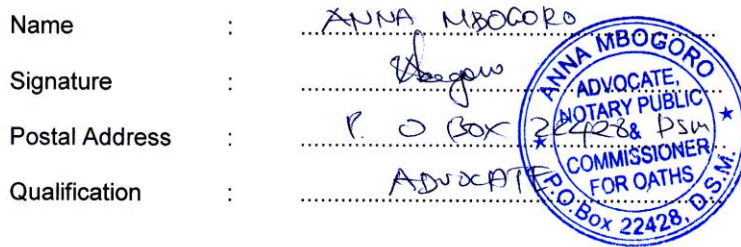 Name : ANNA MBOGORO
Signature : Mbogoro
Postal Address : P. O BOX 22428 Dsm
Qualification : ADVOCATE
ANNA MBOGORO
ADVOCATE,
NOTARY PUBLIC
&
COMMISSIONER
FOR OATHS
P.O.Box 22428, D.S.M.